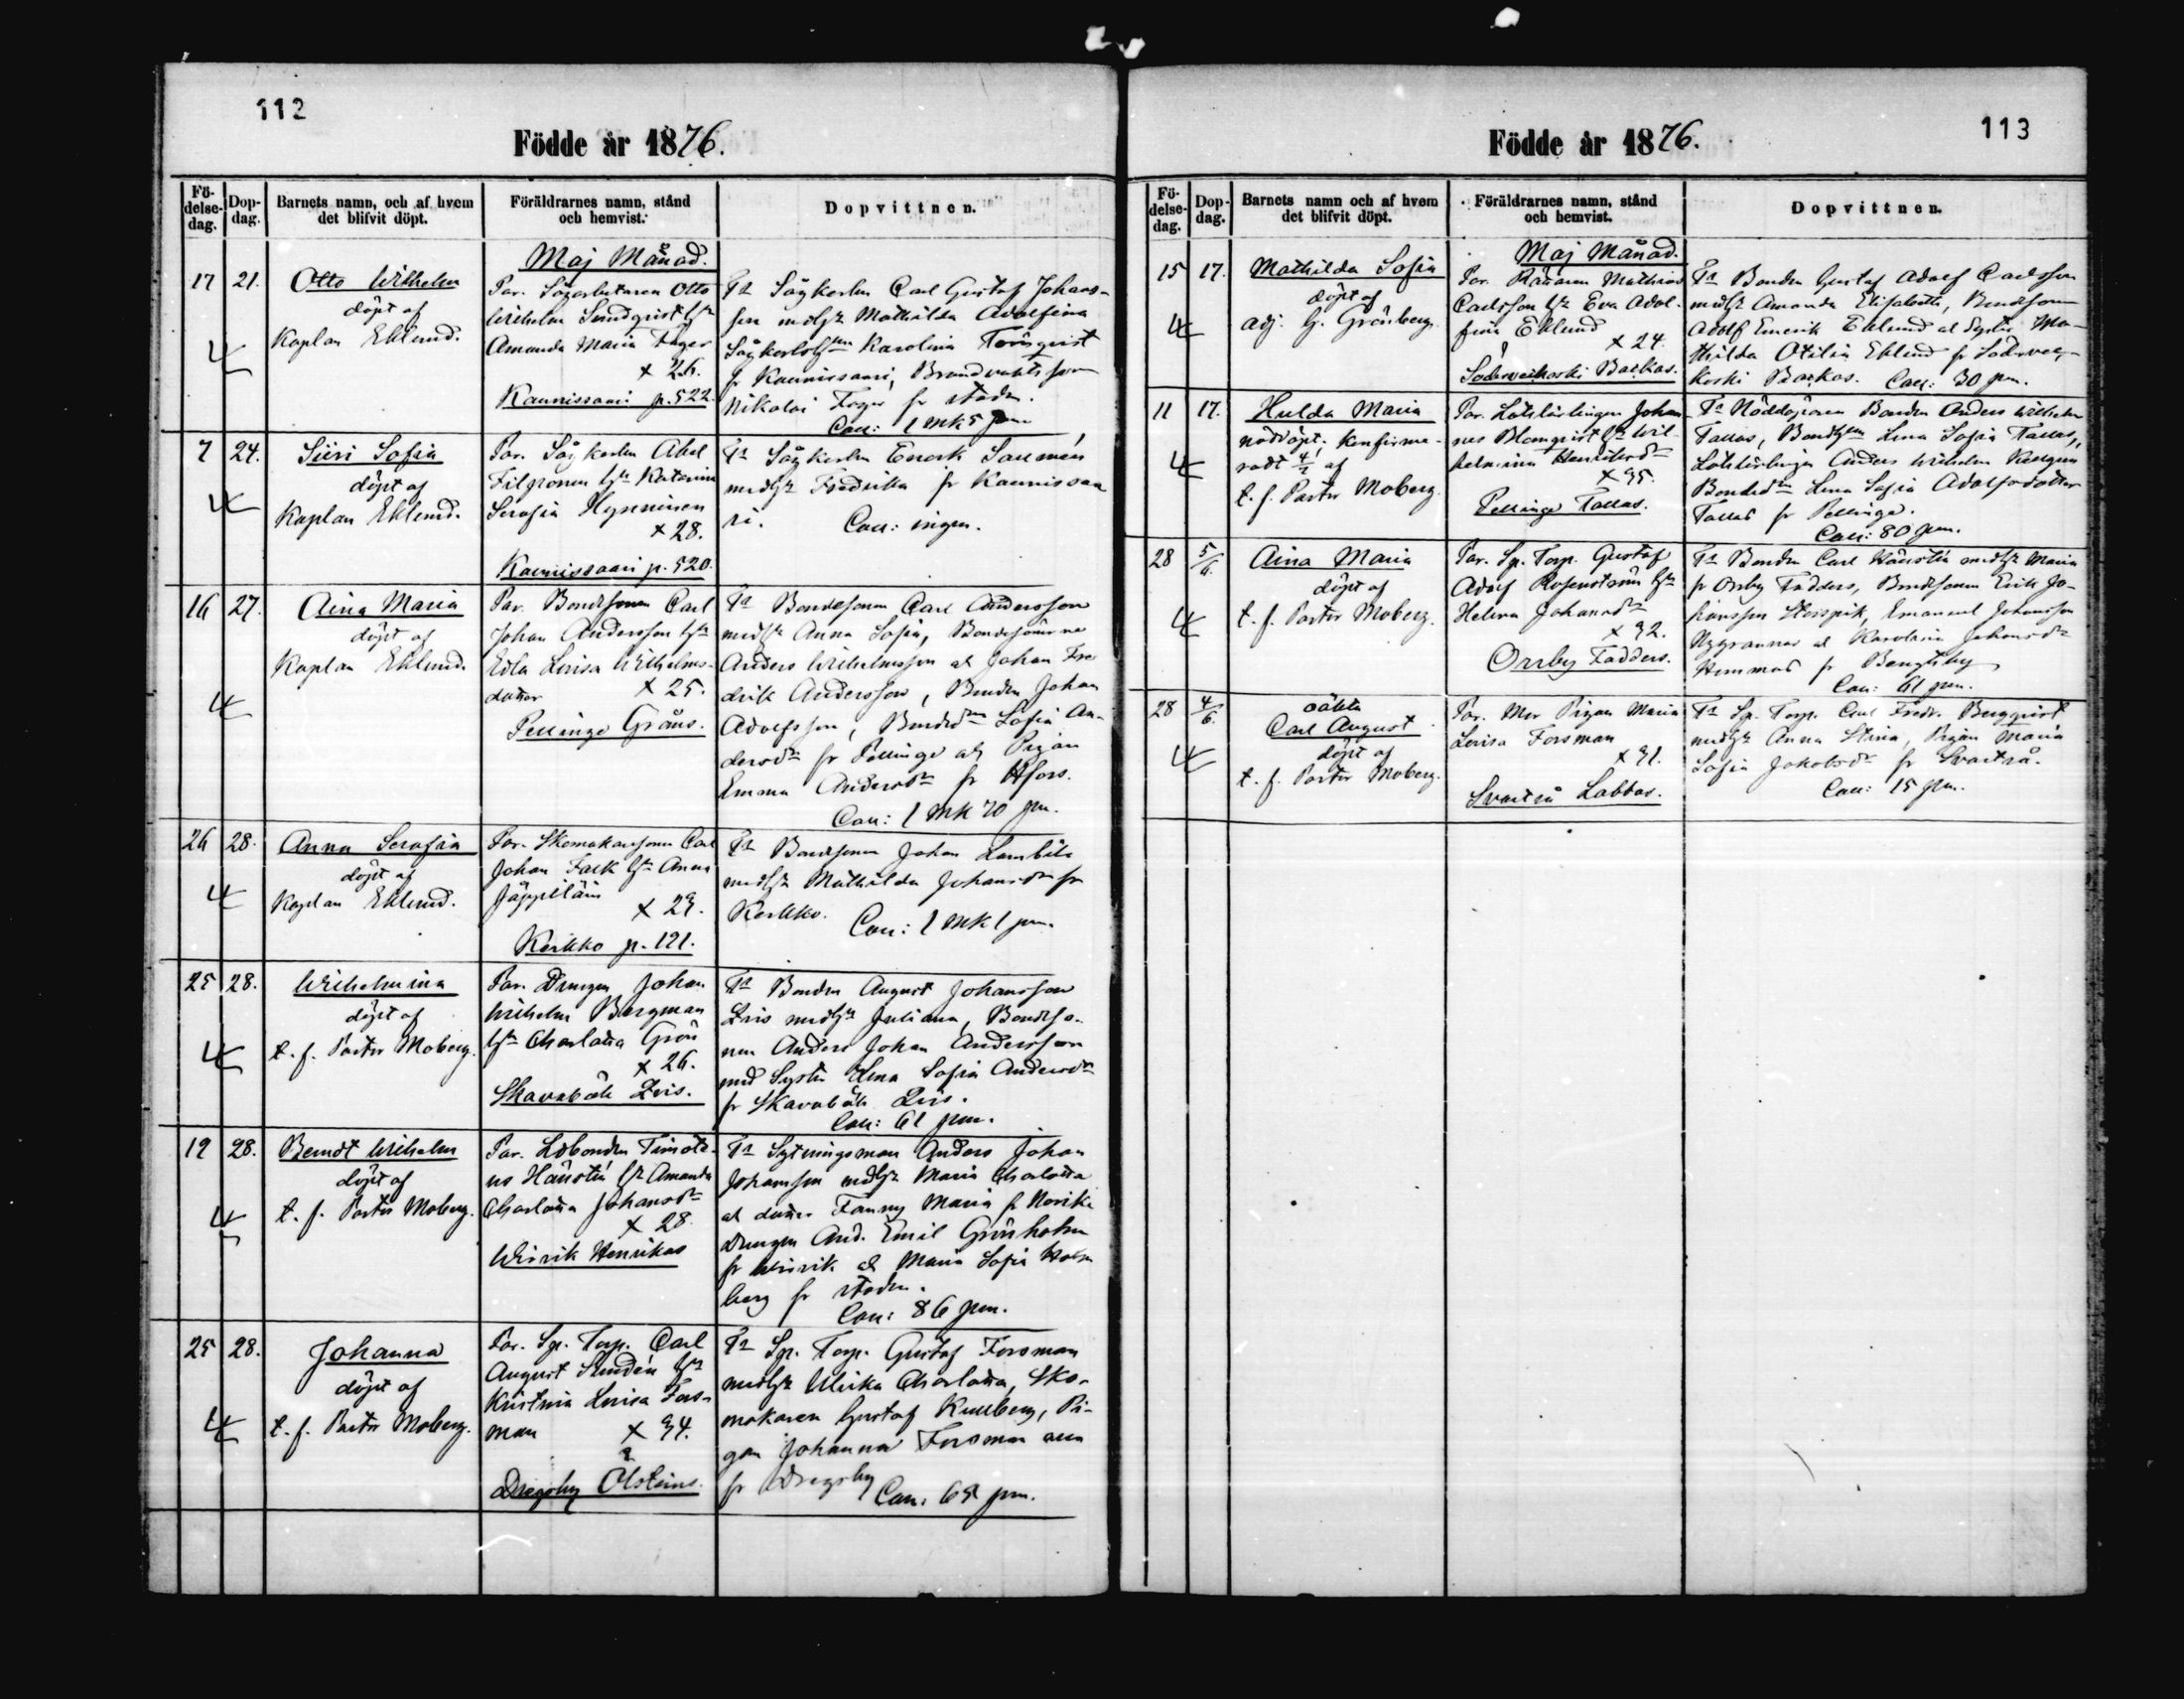 112
Födde år 1876.
Fö-
delse-
dag.
Dop-
dag.
Barnets namn, och af hvem
det blifvit döpt.
Föräldrarnes namn, stånd
och hemvist.
Dopvittnen.
Maj Månad.
17
21.
Otto Wilhelm
döpt af
Kaplan Eklund.
Par. Sågarbetaren Otto
Wilhelm Sundqvist
Amanda Maria Fager
x 26.
Kaunissaari p. 522.
Sågkarlen Carl Gustaf Johans-
son Mathilda Adolfina
Karolina Törnqvist
fr Kaunissaari,
Nikolai Fager fr staden.
Coll: 1 mk 5 pm.
7
24.
Siiri Sofia
döpt af
Kaplan Eklund.
Par. Sågkarlen Abel
Filpponen Katarina
Serafia Hynninen
x 28.
Kaunissaari p. 520.
Sågkarlen Enok
Fredrika fr Kaunissaa
ri. Coll: ingen.
16
27.
Aina Maria
döpt af
Kaplan Eklund.
Par. Bondesonen Carl
Johan Andersson
Edla Lovisa Wilhelms-
dotter x 25.
Pellinge Gräns.
Bondesonen Carl Andersson
Anna Sofia, Bondesönerne
Anders Wilhelmsson Johan Fre
drik Andersson, Bonden Johan
Adolfsson, Sofia An-
dersdr fr Pellinge Pigan
Emma Andersdr fr Hfors.
Coll: 1 mk 70 pm.
26
28.
Anna Serafia
döpt af
Kaplan Eklund.
Par. Skomakarsonen Carl
Johan Falk Anna
x 29.
Kerkko p. 121.
Bondesonen Johan
Mathilda Johansdr fr
Kerkko. Coll: 1 mk 1 pm.
25
28.
Wilhelmina
döpt af
t. f. Pastor Moberg.
Par. Drengen Johan
Wilhelm Bergman
Charlotta Grön
x 26.
Skavaböle
Bonden August Johansson
Juliana, Bondeso-
nen Anders Johan Andersson
med Syster Lena Sofia Andersdr
fr Skavaböle
Coll: 61 pm.
19
28.
Berndt Wilhelm
döpt af
t. f. Pastor Moberg.
Par. Timote-
us Amanda
Charlotta Johansdr
x 28.
Henrikas
Sytningsman Anders Johan
Johansson Maria Charlotta
dotter Fanny Maria fr
Drengen And. Emil Grönholm
fr Maria Sofia Holm
berg fr staden.
Coll: 86 pm.
25
28.
Johanna
döpt af
t. f. Pastor Moberg.
Par. Sp. Torp. Carl
August
Kristina Lovisa Fors-
man x 34.
Drägsby Olsteins.
Sp. Torp. Gustaf Forsman
Ulrika Charlotta, Sko-
makaren Gustaf Kullberg, Pi-
gan Johanna Forsman alla
fr Drägsby Coll: 65 pm.
113
Födde år 1876.
Fö-
delse-
dag.
Dop-
dag.
Barnets namn och af hvem
det blifvit döpt.
Föräldrarnes namn, stånd
och hemvist.
Dopvittnen.
Maj Månad.
15
17.
Mathilda Sofia
döpt af
adj. G. Grönberg.
Par. Mathias
Carlsson Eva Adol-
fina Eklund
x 24.
Söderveckoski Backas.
Bonden Gustaf Adolf Carlsson
Amanda Elisabeth, Bondesonen
Adolf Emerik Eklund Syster Ma-
thilda Otilia Eklund fr Söderveck-
koski Backas. Coll: 30 pm.
11
17.
Hulda Maria
nöddöpt. Konfirme-
radt 4/7 af
t. f. Pastor Moberg.
Par. Lotslärlingen Johan-
nes Blomqvist Wil-
helmina Henriksdr
x 35.
Pellinge Tallas.
Nöddöparen Bonden Anders Wilhelm
Tallas, Lena Sofia Tallas,
Lotslärlingen Anders Wilhelm
Lena Sofia Adolfsdotter
Tallas fr Pellinge.
Coll: 80 pm.
28
5/6.
Aina Maria
döpt af
t. f. Pastor Moberg.
Par. Sp. Torp. Gustaf
Adolf Rosenström
Helena Johansdr
x 32.
Orrby Fadders.
Bonden Carl Maria
fr Orrby Fadders, Bondesonen Erik Jo-
hansson Storpik, Emanuel Johansson
Nygrannas Karolina Johansdr
Hemmas fr Bengtsby
Coll: 61 pm.
28
4/6.
oäkta
Carl August
döpt af
t. f. Pastor Moberg.
Par. Mor Pigan Maria
Lovisa Forsman
x 31.
Svartså Labbas.
Sp. Torp. Carl Fredr. Bergqvist
Anna Stina, Pigan Maria
Sofia Jakobsdr fr Svartså.
Coll: 15 pm.